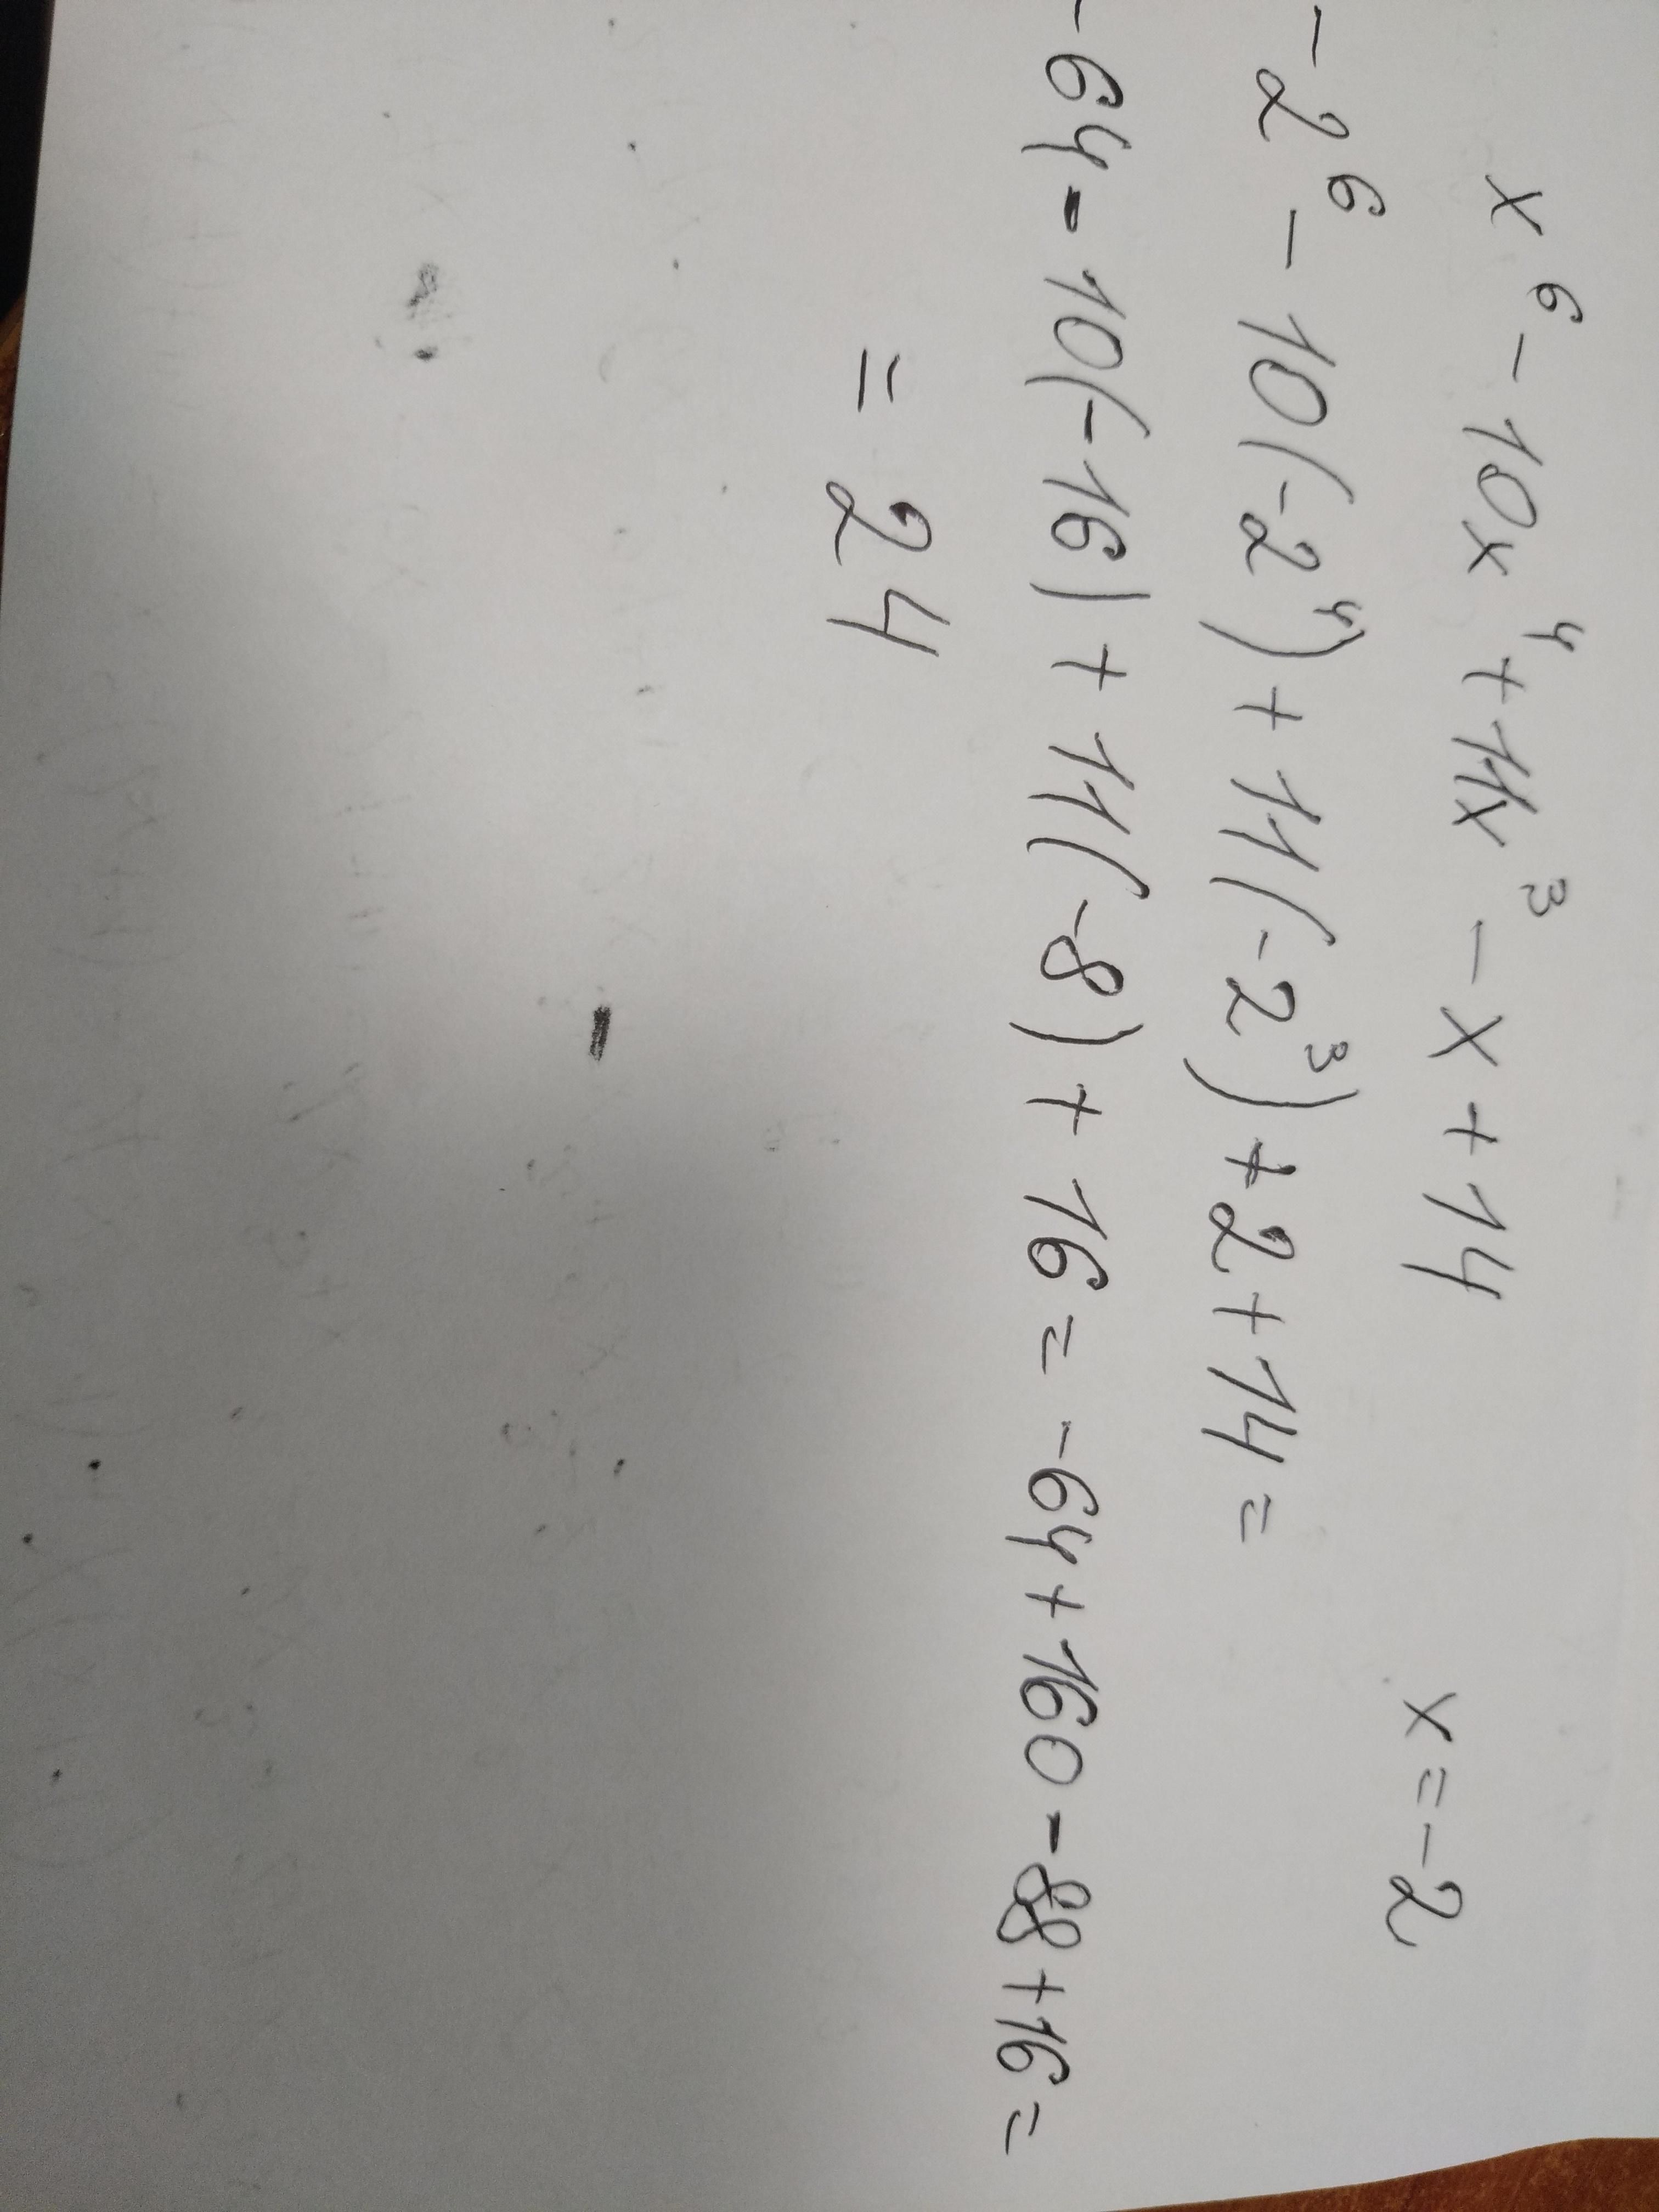 x⁶ - 10x⁴ + 11x³ - x + 14 x = -2
-2⁶ - 10(-2⁴) + 11(-2³) + 2 + 14 =
-64 - 10(-16) + 11(-8) + 16 = -64 + 160 - 88 + 16 =
= 24